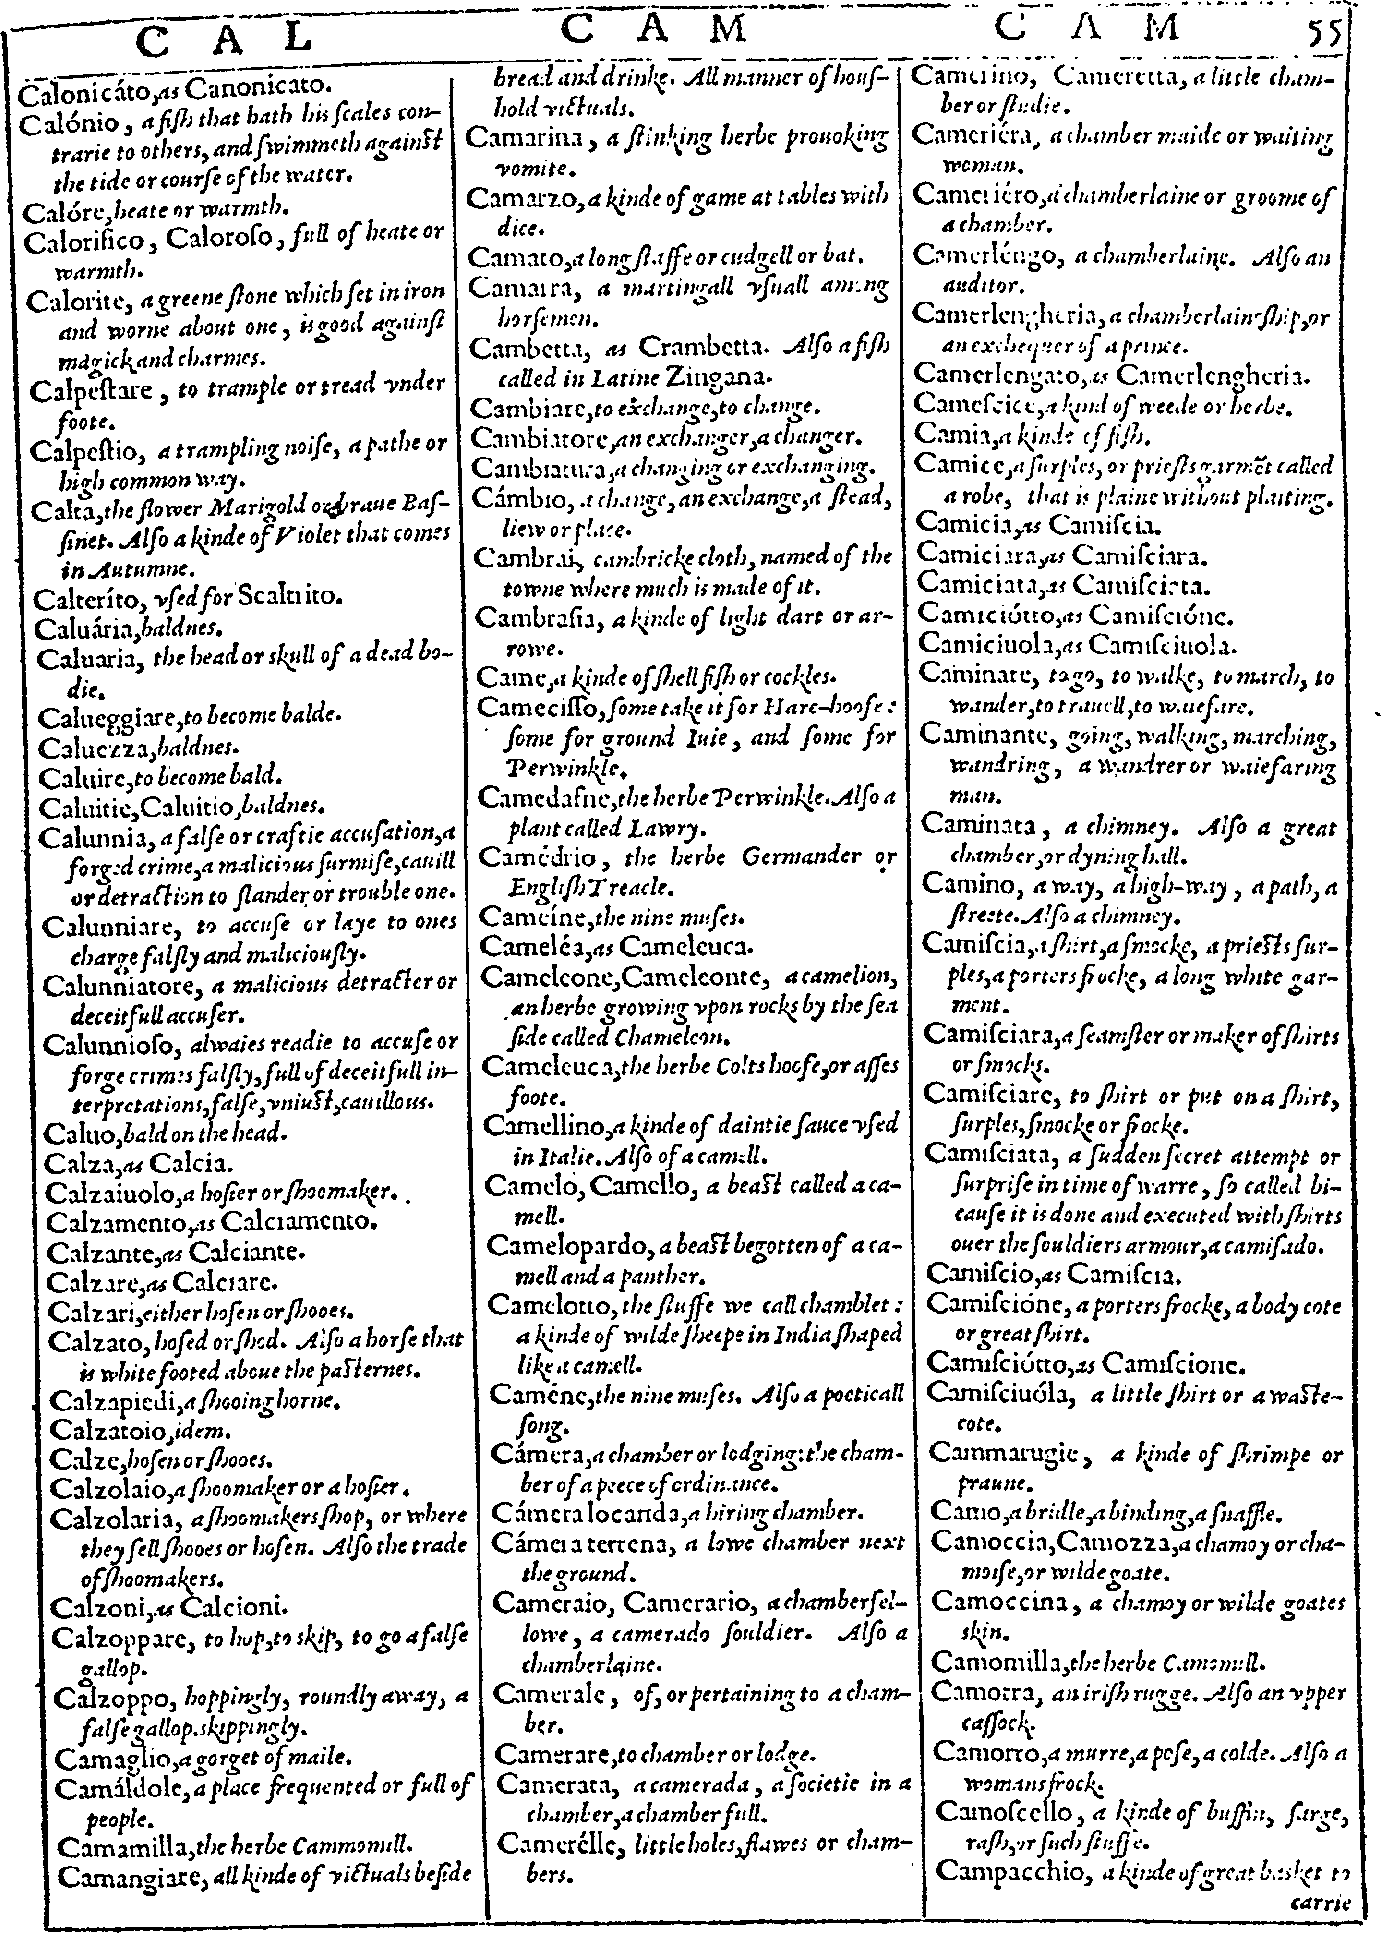 CAL
CAM
CAM
55
Calonicáto, as Canonicato.
Calónio, a fiſh that hath his ſcales con-
trarie to others, and ſwimmeth against
the tide or courſe of the water.
Calóre, heate or warmth.
Calorifico, Caloroſo, full of heate or
warmth.
Calorite, a greene ſtone which ſet in iron
and worne about one, is good againſt
magick and charmes.
Calpeſtare, to trample or tread vnder
foote.
Calpeſtio, a trampling noiſe, a pathe or
high common way.
Calta, the flower Marigold or braue Baſ-
ſinet. Alſo a kinde of Violet that comes
in Autumne.
Calteríto, vſed for
Caluária, baldnes.
Caluaria, the head or skull of a dead bo-
die.
Calueggiare, to become balde.
Caluezza, baldnes.
Caluire, to become bald.
Caluitie, Caluitio, baldnes.
Calunnia, a falſe or craftie accuſation, a
forged crime, a malicious ſurmiſe, cauill
or detraction to ſlander or trouble one.
Calunniare, to accuſe or laye to ones
charge falſly and maliciouſly.
Calunniatore, a malicious detracter or
deceitfull accuſer.
Calunnioſo, alwaies readie to accuſe or
forge crimes falſly, full of deceitfull in-
terpretations, falſe, vniust, cauillous.
Caluo, bald on the head.
Calza, as Calcia.
Calzaiuolo, a hoſier or ſhoomaker.
Calzamento, as Calciamento.
Calzante, as Calciante.
Calzare, as Calciare.
Calzari, either hoſen or ſhooes.
Calzato, hoſed or ſhod. Alſo a horſe that
is white footed aboue the pasternes.
Calzapiedi, a ſhooing horne.
Calzatoio, idem.
Calze, hoſen or ſhooes.
Calzolaio, a ſhoomaker or a hoſier.
Calzolaria, a ſhoomakers ſhop, or where
they ſell ſhooes or hoſen. Alſo the trade
of ſhoomakers.
Calzoni, as Calcioni.
Calzoppare, to hop, to skip, to go a falſe
gallop.
Calzoppo, hoppingly, roundly away, a
falſe gallop. skippingly.
Camaglio, a gorget of maile.
Camáldole, a place frequented or full of
people.
Camamilla, the herbe Cammomill.
Camangiare, all kinde of victuals beſide
bread and drinke. All manner of houſ-
hold victuals.
Camarina, a ſtinking herbe prouoking
vomite.
Camarzo, a kinde of game at tables with
dice.
Camato, a long ſtaffe or cudgell or bat.
Camarra, a martingall vſuall among
horſemen.
Cambetta, as Crambetta. Alſo a fiſh
called in Latine Zingana.
Cambiare, to exchange, to change.
Cambiatore, an exchanger, a changer.
Cambiatura, a changing or exchanging.
Cámbio, a change, an exchange, a ſtead,
liew or place.
Cambrai, cambricke cloth, named of the
towne where much is made of it.
Cambraſia, a kinde of light dart or ar-
rowe.
Came, a kinde of ſhell fiſh or cockles.
Cameciſſo, ſome take it for Hare-hoofe:
ſome for ground Iuie, and ſome for
Perwinkle.
Camedafne, the herbe Perwinkle. Alſo a
plant called Lawry.
Camédrio, the herbe Germander or
Engliſh Treacle.
Cameíne, the nine muſes.
Cameléa, as Cameleuca.
Cameleone, Cameleonte, a camelion,
an herbe growing vpon rocks by the ſea
ſide called Chameleon.
Cameleuca, the herbe Colts hoofe, or aſſes
foote.
Camellino, a kinde of daintie ſauce vſed
in Italie. Alſo of a camell.
Camelo, Camello, a beast called a ca-
mell.
Camelopardo, a beast begotten of a ca-
mell and a panther.
Camelotto, the ſtuffe we call chamblet:
a kinde of wilde ſheepe in India ſhaped
like a camell.
Caméne, the nine muſes. Alſo a poeticall
ſong.
Cámera, a chamber or lodging: the cham-
ber of a peece of ordinance.
Cámera locanda, a hiring chamber.
Cámera terrena, a lowe chamber next
the ground.
Cameraio, Camerario, a chamber fel-
lowe, a camerado ſouldier. Alſo a
chamberlaine.
Camerale, of, or pertaining to a cham-
ber.
Camerare, to chamber or lodge.
Camerata, a camerada, a ſocietie in a
chamber, a chamber full.
Camerélle, little holes, flawes or cham-
bers.
Camerino, Cameretta, a little cham-
ber or ſtudie.
Cameriéra, a chamber maide or waiting
woman.
Cameriéro, a chamberlaine or groome of
a chamber.
Camerléngo, a chamberlaine. Alſo an
auditor.
Camerlengheria, a chamberlaineſhip, or
an exchequer of a prince.
Camerlengato, as Camerlengheria.
Cameſcice, a kind of weede or herbe.
Camia, a kinde of fiſh.
Camice, a ſurples, or prieſts garmẽt called
a robe, that is plaine without plaiting.
Camicia, as Camiſcia.
Camiciara, as Camiſciara.
Camiciata, as Camiſciata.
Camiciótto, as Camiſcióne.
Camiciuola, as Camiſciuola.
Caminare, to go, to walke, to march, to
wander, to trauell, to waiefare.
Caminante, going, walking, marching,
wandring, a wandrer or waiefaring
man.
Caminata, a chimney. Alſo a great
chamber, or dyning hall.
Camino, a way, a high-way, a path, a
ſtreete. Alſo a chimney.
Camiſcia, a ſhirt, a ſmocke, a priests ſur-
ples, a porters frocke, a long white gar-
ment.
Camiſciara, a ſeamſter or maker of ſhirts
or ſmocks.
Camiſciare, to ſhirt or put on a ſhirt,
ſurples, ſmocke or frocke.
Camiſciata, a ſudden ſecret attempt or
ſurpriſe in time of warre, ſo called bi-
cauſe it is done and executed with ſhirts
ouer the ſouldiers armour, a camiſado.
Camiſcio, as Camiſcia.
Camiſcióne, a porters frocke, a body cote
or great ſhirt.
Camiſciótto, as Camiſcione.
Camiſciuóla, a little ſhirt or a waste-
cote.
Cammarugie, a kinde of ſhrimpe or
praune.
Camo, a bridle, a binding, a ſnaffle.
Camoccia, Camozza, a chamoy or cha-
moiſe, or wilde goate.
Camoccina, a chamoy or wilde goates
skin.
Camomilla, the herbe Camomill.
Camorra, an iriſh rugge. Alſo an vpper
caſſock.
Camorro, a murre, a poſe, a colde. Alſo a
womans frock.
Camoſcello, a kinde of buffin, ſarge,
raſh, or ſuch ſtuffe.
Campacchio, a kinde of great basket to
carrie